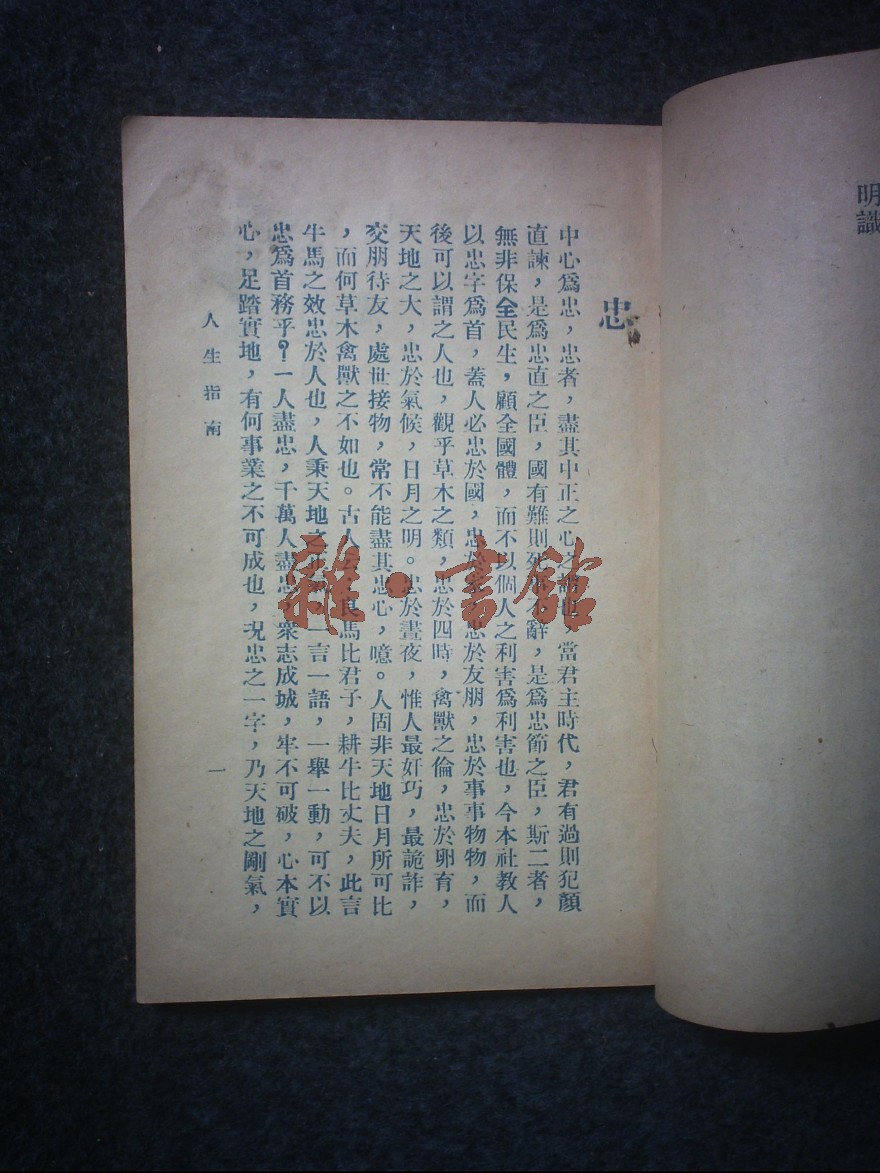 明識
忠
中心爲忠，忠者，盡其中正之心之謂也，當君主時代，君有過則犯顏
直諫，是爲忠直之臣，國有難則死不辭，是爲忠節之臣，斯二者，
無非保全民生，顧全國體，而不以個人之利害爲利害也，今本社教人
以忠字爲首，蓋人必忠於國，忠於家，忠於友朋，忠於事事物物，而
後可以謂之人也，觀乎草木之類，忠於四時，禽獸之倫，忠於卵育，
天地之大，忠於氣候，日月之明。忠於晝夜，惟人最奸巧，最詭詐，
交朋待友，處世接物，常不能盡其忠心，噫。人固非天地日月所可比
，而何草木禽獸之不如也。古人云，良馬比君子，耕牛比丈夫，此言
牛馬之效忠於人也，人秉天地之，一言一語，一舉一動，可不以
忠爲首務乎？一人盡忠，千萬人盡忠，衆志成城，牢不可破，心本實
心，足踏實地，有何事業之不可成也，況忠之一字，乃天地之剛氣，
人生指南
一
雜·書館